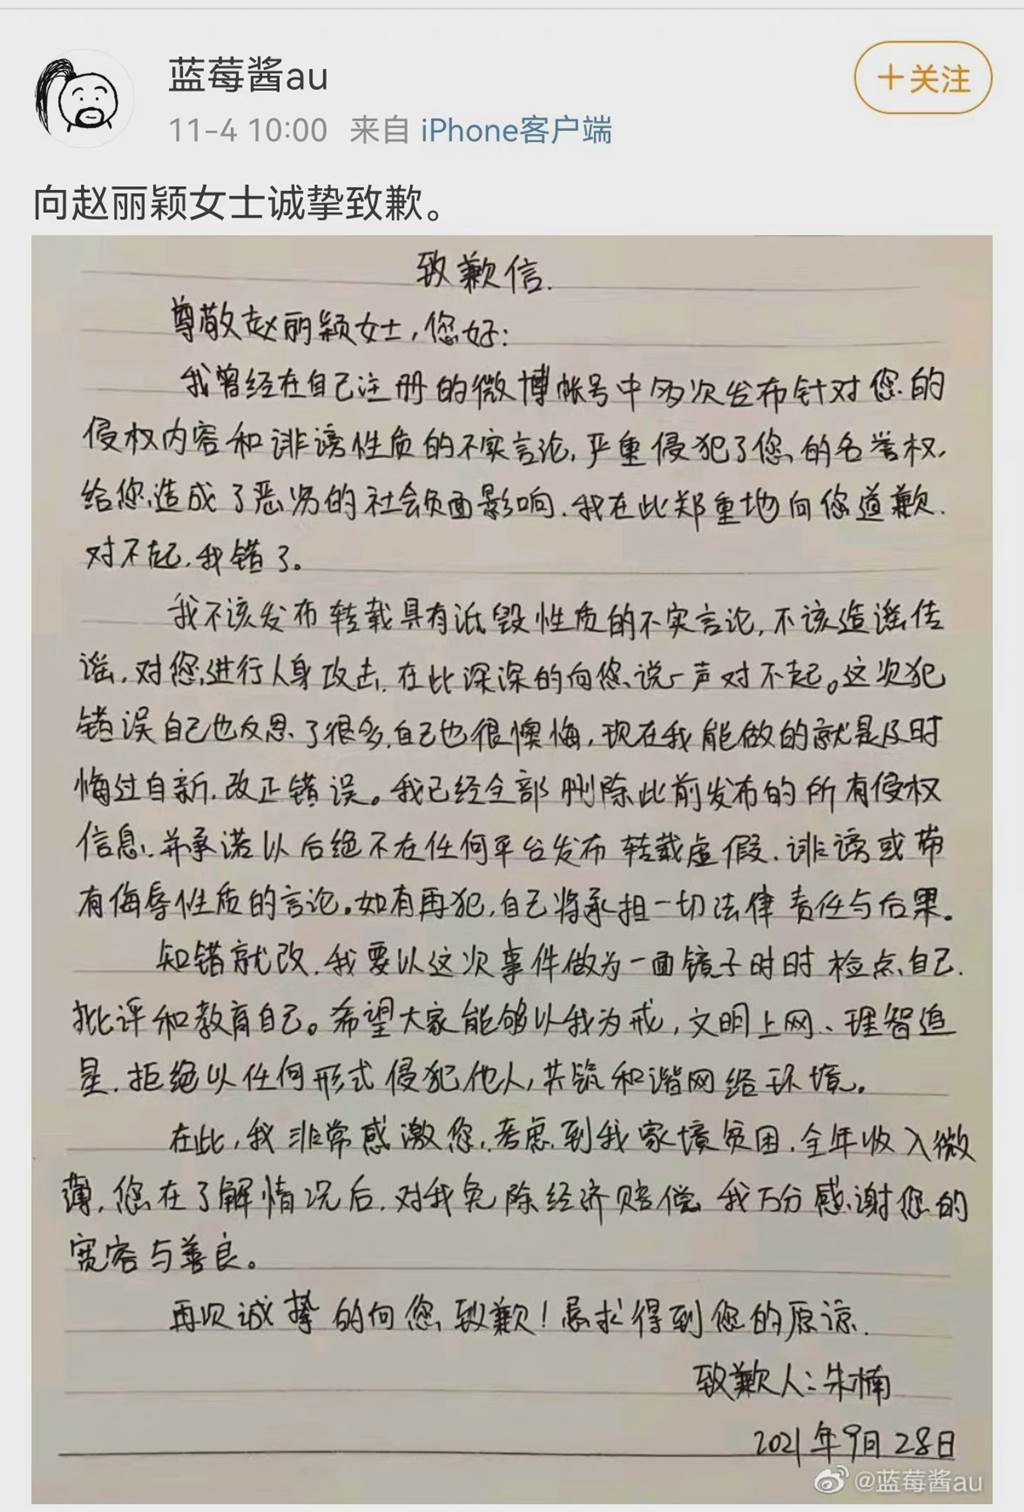 蓝莓酱au
＋关注
11-4 10:00 来自 iPhone客户端
向赵丽颖女士诚挚致歉。
致歉信.
尊敬赵丽颖女士,您好:
我曾经在自己注册的微博帐号中多次发布针对您的
侵权内容和诽谤性质的不实言论,严重侵犯了您的名誉权,
给您造成了恶劣的社会负面影响.我在此郑重地向您道歉.
对不起,我错了。
我不该发布转载具有诋毁性质的不实言论,不该造谣传
谣,对您进行人身攻击,在此深深的向您说一声对不起。这次犯
错误自己也反思了很多,自己也很懊悔,现在我能做的就是及时
悔过自新.改正错误。我已经全部删除此前发布的所有侵权
信息、并承诺以后绝不在任何平台发布转载虚假、诽谤或带
有侮辱性质的言论。如有再犯,自己将承担一切法律责任与后果。
知错就改.我要以这次事件做为一面镜子时时检点自己.
批评和教育自己。希望大家能够以我为戒,文明上网、理智追
星.拒绝以任何形式侵犯他人,共筑和谐网络环境。
在此,我非常感激您,考虑到我家境贫困.全年收入微
薄,您在了解情况后,对我免除经济赔偿,我万分感谢您的
宽容与善良。
再次诚挚的向您致歉!恳求得到您的原谅.
致歉人:朱楠
2021年9月28日
@蓝莓酱au